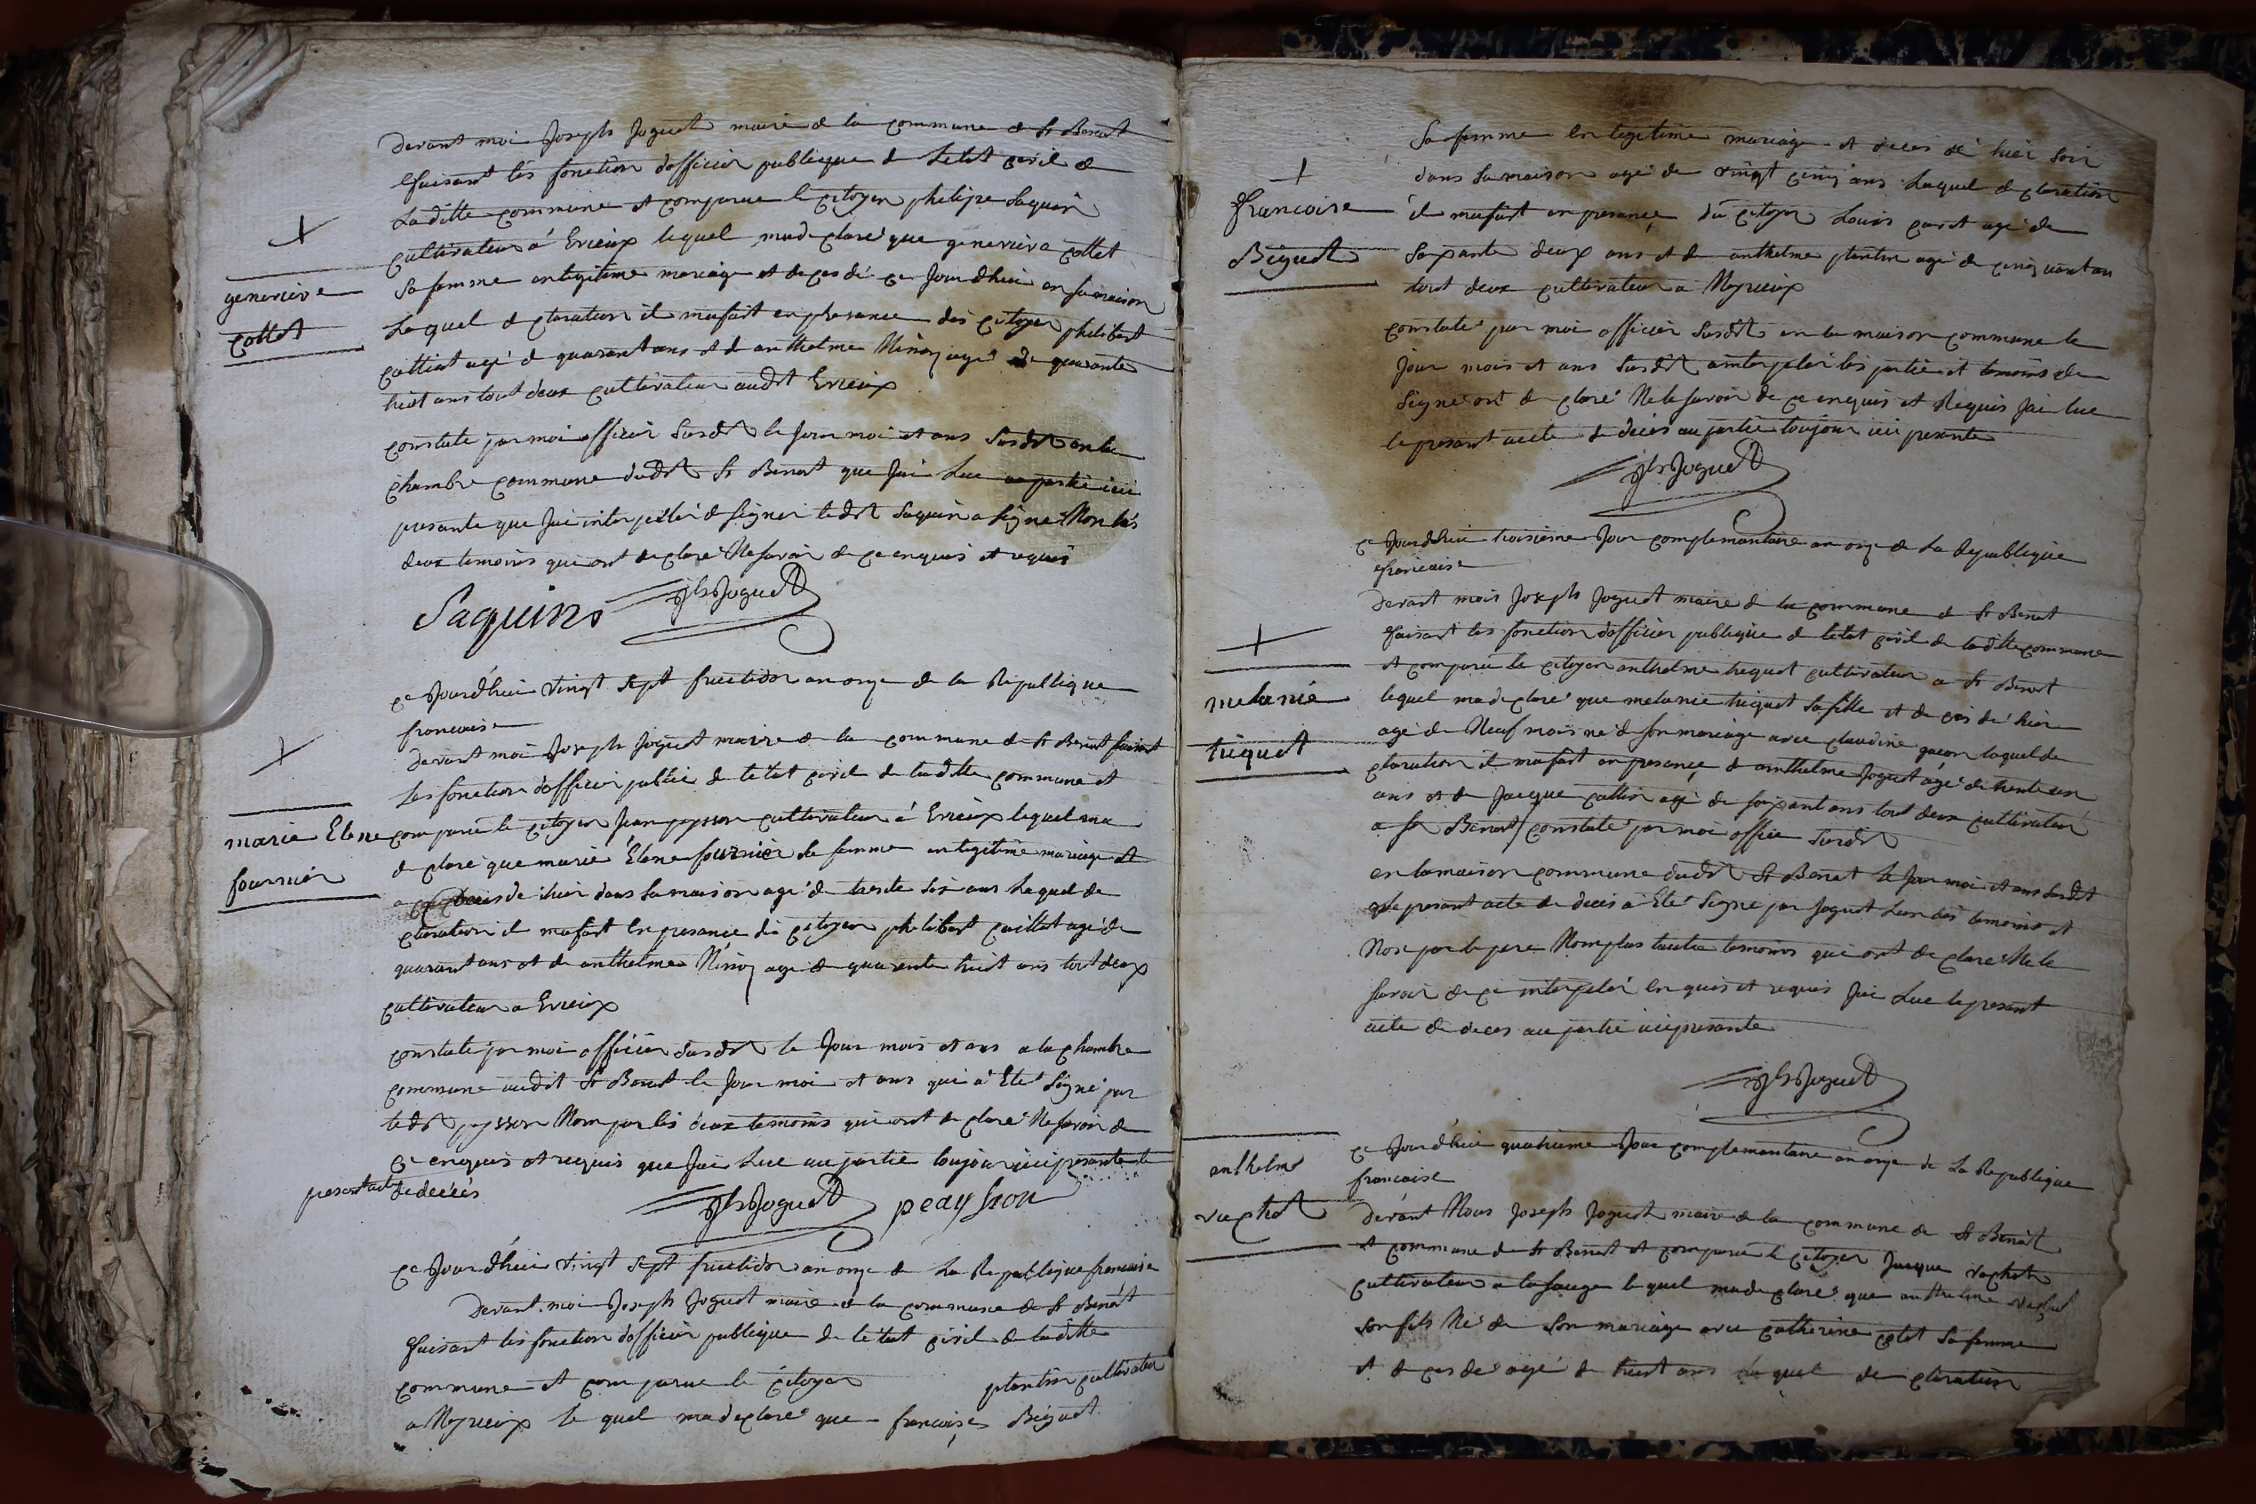 devant moi Joseph Joguet maire de la commune de St Benoit
faisant les fonction d'officier publique de letat civil de
Laditte commune et comparue le citoyen philipe Saquin
cultivateur a Evieux lequel ma declaré que genevieve collet
Sa femme en legitime mariage et deces dé ce Jourdhui en sa maison
Laquel declaration il mafait en presance des citoyen philibert
cattiat agé de quarant ans et de anthelme Niñoz agé de quarante
huit ans tout deux cultivateur audit Evieux
genevieve
collet
constate par moi officier Susdit le Jour moi et ans Susdit en la
chambre commune dudit St Benoit que Jai Lue au partie ici
presante que Jai interpellé de signer ledit Saquin a signé Non les
deux temoins qui ont declaré Ne savoir de ce enquis et requis
Saquin Jh Joguet
ce Jourdhui vingt sept fructidor an onze de la Republique
francaise
devant moi Joseph Joguet maire de la commune de St Benoit faisant
Les fonction d'officier public de letat civil de laditte commune et
marie Elene
fournier
comparue le citoyen Jean peysson cultivateur á Evieux lequel ma
declaré que marie Elene fournier sa femme en legitime mariage et
deces dé hier dans sa maison agé de trente six ans Laquel de
claration il mafait en presance du citoyen philibert cuillat agé de
quarant ans et de anthelme Niñoz agé de quarente huit ans tout deux
cultivateur a Evieux
constate par moi officier Susdit le Jour mois et ans a la chambre
commune audit St Benoit le Jour moi et ans qui a Eté Signé par
ledit peysson Nom par les deux temoins qui ont declaré Ne savoir de
ce enquis et requis que Jai Lue au partie toujour ici presante le
presant acte de décés
Jh Joguet peaysson
ce Jourdhui vingt sept fructidor an onze de La Republique francaise
Devant moi Joseph Joguet maire de la commune de St Benoit
faisant les fonction d'officier publique de letat civil de laditte
commune et comparue le citoyen plantin cultivateur
a Meyrieux le quel ma declaré que francoise Biguet
francoise
Biguet
Sa femme en legitime mariage et deces dé hier soir
dans sa maison agé de vingt cinq ans Laquel declaration
il mafait en presance du citoyen Louis curit agé de
soixante deux ans et de anthelme plantin agé de cinquant an
tout deux cultivateur a Meyrieux
constaté par moi officier Susdit en la maison commune le
Jour mois et ans Susdit ainterpeler les partie et temoins de
Signé ont declaré Ne le savoir de ce enquis et Requis Jai lue
le presant acte de deces au partie toujour ici presante
Jh Joguet
ce Jourdhui troisieme Jour complemantaire an onze de La Republique
francaise
devant mois Joseph Joguet maire de la commune de St Benoit
faisant les fonction d'officier publique de letat civil de laditte commune
melanie
triquet
et comparue le citoyen anthelme triquet cultivateur a St Benoit
lequel ma declaré que melanie triquet sa fille et deces dé hier
agé de Neuf mois né de son mariage avec claudine gacon laquel de
claration il mafait en presance de anthelme Joguet agé de trente un
ans et de Jacque cottin agé de soixant ans tout deux cultivateur
a St Benoit / constaté par moi officie Susdit
en la maison commune dudit St Benoit le Jour moi et ans Susdit
que le presant acte de deces a Eté Signé par Joguet Lun des temoins et
Non par le pere Nom plus lautre temoins qui ont declaré Ne le
savoir de ce interpeler enquis et requis Jai Lue le presant
acte de deces au partie ici presante
Jh Joguet
anthelme
vuachet
ce Jourdhui quatrieme Jour complemantaire an onze de La Republique
francaise
devant Nous Joseph Joguet maire de la commune de St Benoit
et commune de St Benoit et comparue le citoyen Jacque vachet
cultivateur a la sauge lequel ma declaré que anthelme vachet
son fils Né de son mariage avec catherine colet sa femme
et deces dé agé de huit ans Laquel declaration